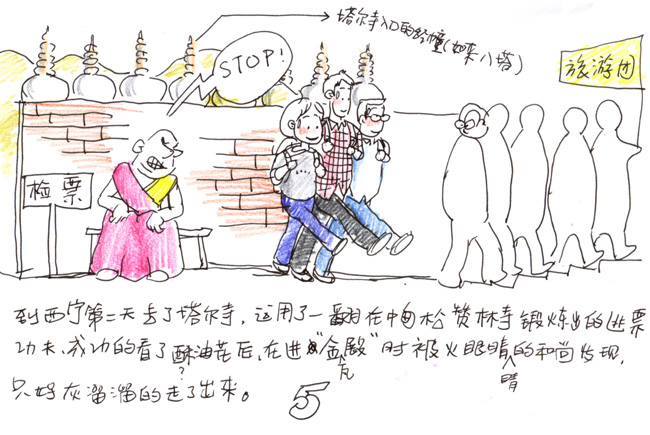 塔尔寺入口的经幢(如来八塔)
STOP!
旅游团
检票
到西宁第二天去了塔尔寺,运用了一翻在中甸松赞林寺锻炼出的逃票
功夫,成功的看了酥油花后,在进"金瓦殿"时被火眼睛晴的和尚发现,
?
只好灰溜溜的走了出来。
5